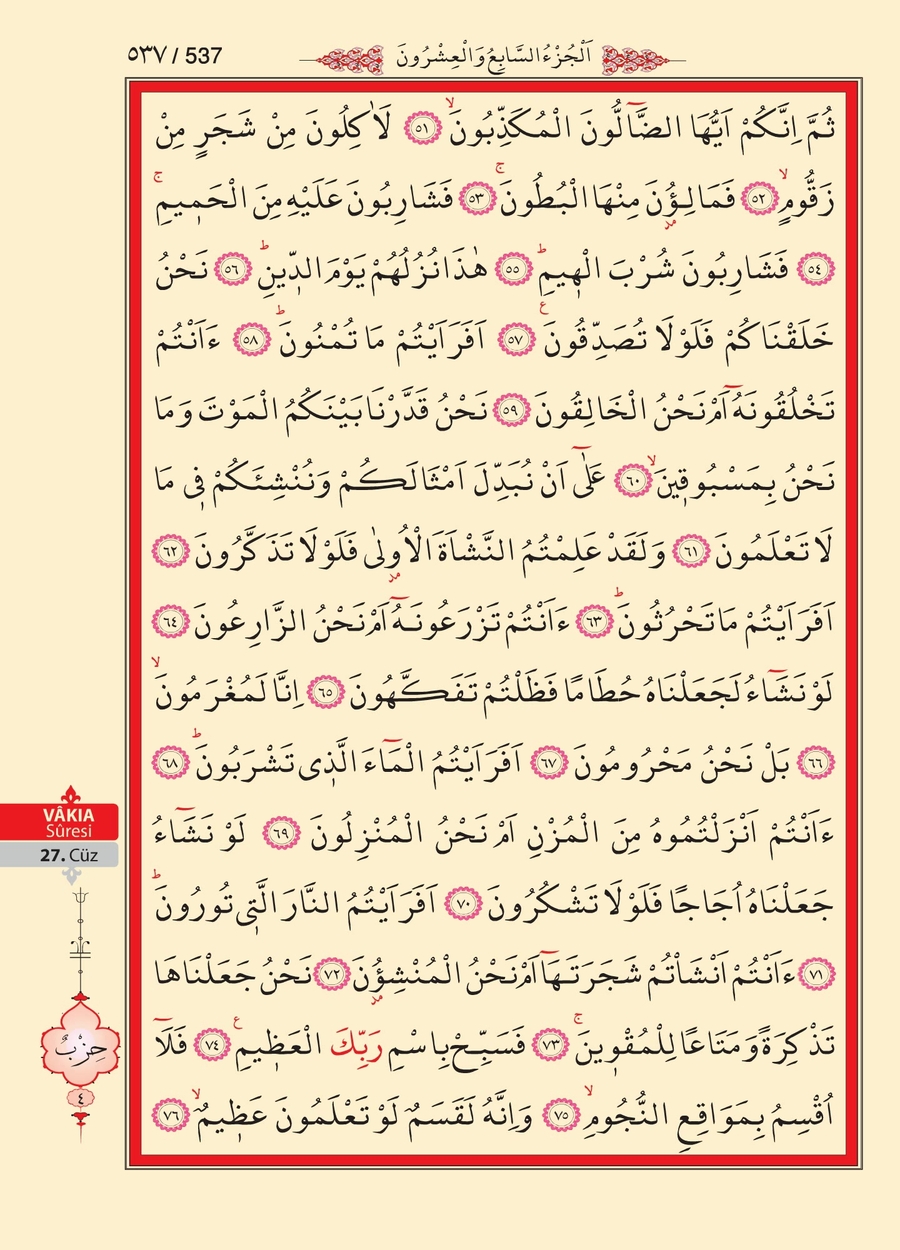 ٥٣٧ / 537
اَلْجُزْءُ السَّابِعُ وَالْعِشْرُونَ
ثُمَّ اِنَّكُمْ اَيُّهَا الضَّٓالُّونَ الْمُكَذِّبُونَۙ ﴿٥١﴾ لَاٰكِلُونَ مِنْ شَجَرٍ مِنْ
زَقُّومٍۙ ﴿٥٢﴾ فَمَالِؤُ۫نَ مِنْهَا الْبُطُونَۚ ﴿٥٣﴾ فَشَارِبُونَ عَلَيْهِ مِنَ الْحَم۪يمِۚ
﴿٥٤﴾ فَشَارِبُونَ شُرْبَ الْه۪يمِۜ ﴿٥٥﴾ هٰذَا نُزُلُهُمْ يَوْمَ الدّ۪ينِۜ ﴿٥٦﴾ نَحْنُ
خَلَقْنَاكُمْ فَلَوْلَا تُصَدِّقُونَ ع ﴿٥٧﴾ اَفَرَاَيْتُمْ مَا تُمْنُونَۜ ﴿٥٨﴾ ءَاَنْتُمْ
تَخْلُقُونَهُٓ اَمْ نَحْنُ الْخَالِقُونَ ﴿٥٩﴾ نَحْنُ قَدَّرْنَا بَيْنَكُمُ الْمَوْتَ وَمَا
نَحْنُ بِمَسْبُوق۪ينَۙ ﴿٦٠﴾ عَلٰٓى اَنْ نُبَدِّلَ اَمْثَالَكُمْ وَنُنْشِئَكُمْ ف۪ي مَا
لَا تَعْلَمُونَ ﴿٦١﴾ وَلَقَدْ عَلِمْتُمُ النَّشْاَةَ الْاُو۫لٰى فَلَوْلَا تَذَكَّرُونَ ﴿٦٢﴾
اَفَرَاَيْتُمْ مَا تَحْرُثُونَۜ ﴿٦٣﴾ ءَاَنْتُمْ تَزْرَعُونَهُٓ اَمْ نَحْنُ الزَّارِعُونَ ﴿٦٤﴾
لَوْ نَشَٓاءُ لَجَعَلْنَاهُ حُطَامًا فَظَلْتُمْ تَفَكَّهُونَ ﴿٦٥﴾ اِنَّا لَمُغْرَمُونَۙ
﴿٦٦﴾ بَلْ نَحْنُ مَحْرُومُونَ ﴿٦٧﴾ اَفَرَاَيْتُمُ الْمَٓاءَ الَّذ۪ي تَشْرَبُونَۜ ﴿٦٨﴾
ءَاَنْتُمْ اَنْزَلْتُمُوهُ مِنَ الْمُزْنِ اَمْ نَحْنُ الْمُنْزِلُونَ ﴿٦٩﴾ لَوْ نَشَٓاءُ
جَعَلْنَاهُ اُجَاجًا فَلَوْلَا تَشْكُرُونَ ﴿٧٠﴾ اَفَرَاَيْتُمُ النَّارَ الَّت۪ي تُورُونَۜ
﴿٧١﴾ ءَاَنْتُمْ اَنْشَاْتُمْ شَجَرَتَهَٓا اَمْ نَحْنُ الْمُنْشِؤُ۫نَ ﴿٧٢﴾ نَحْنُ جَعَلْنَاهَا
تَذْكِرَةً وَمَتَاعًا لِلْمُقْو۪ينَۚ ﴿٧٣﴾ فَسَبِّحْ بِاسْمِ رَبِّكَ الْعَظ۪يمِ ع ﴿٧٤﴾ فَلَٓا
اُقْسِمُ بِمَوَاقِعِ النُّجُومِۙ ﴿٧٥﴾ وَاِنَّهُ لَقَسَمٌ لَوْ تَعْلَمُونَ عَظ۪يمٌۙ ﴿٧٦﴾
VÂKIA
Sûresi
27. Cüz
حِزْبٌ
٤